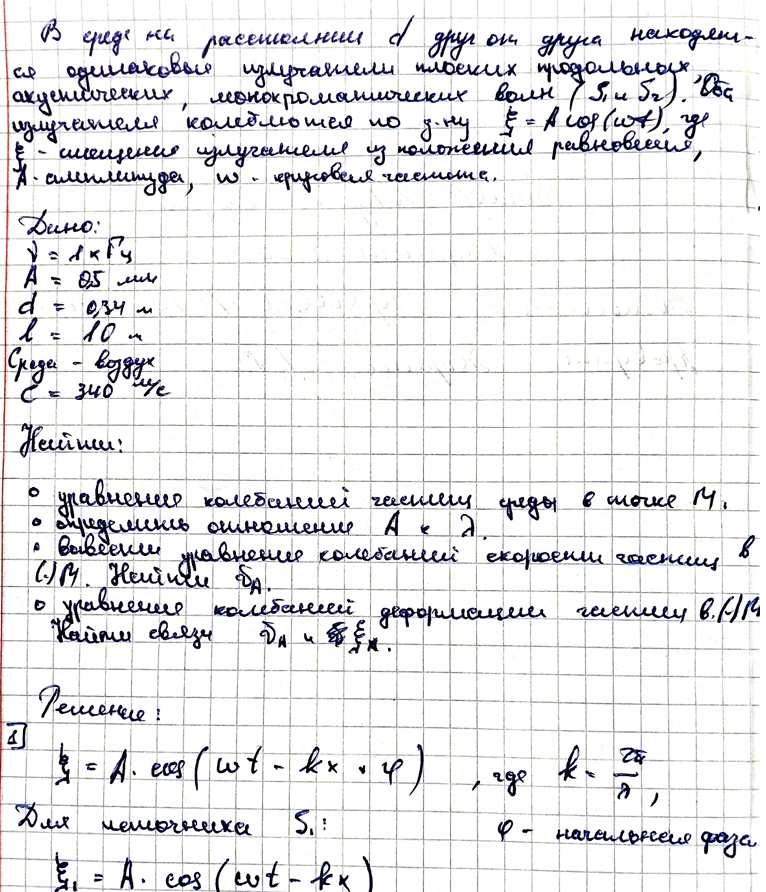 В среде на расстоянии d друг от друга находят-
ся одинаковые излучатели плоских продольных,
акустических, монохроматических волн (S₁ и S₂). Оба
излучателя колеблются по з-ну ξ = A cos(ωt), где
ξ - смещение излучателя из положения равновесия,
A - амплитуда, ω - круговая частота.
Дано:
ν = 1 кГц
A = 0,5 мм
d = 0,34 м
l = 10 м
Среда - воздух
C = 340 м/с
Найти:
∘ уравнение колебаний частиц среды в точке М.
∘ определить отношение A к λ.
∘ вывести уравнение колебаний скорости частиц в
(·)М. Найти
∘ уравнение колебаний деформации частиц в (·)М
Найти связь и
Решение:
1
ξ = A · cos(ωt - kx + φ) , где k = 2π/λ,
Для источника S₁: φ - начальная фаза
ξ₁ = A · cos(ωt - kx)